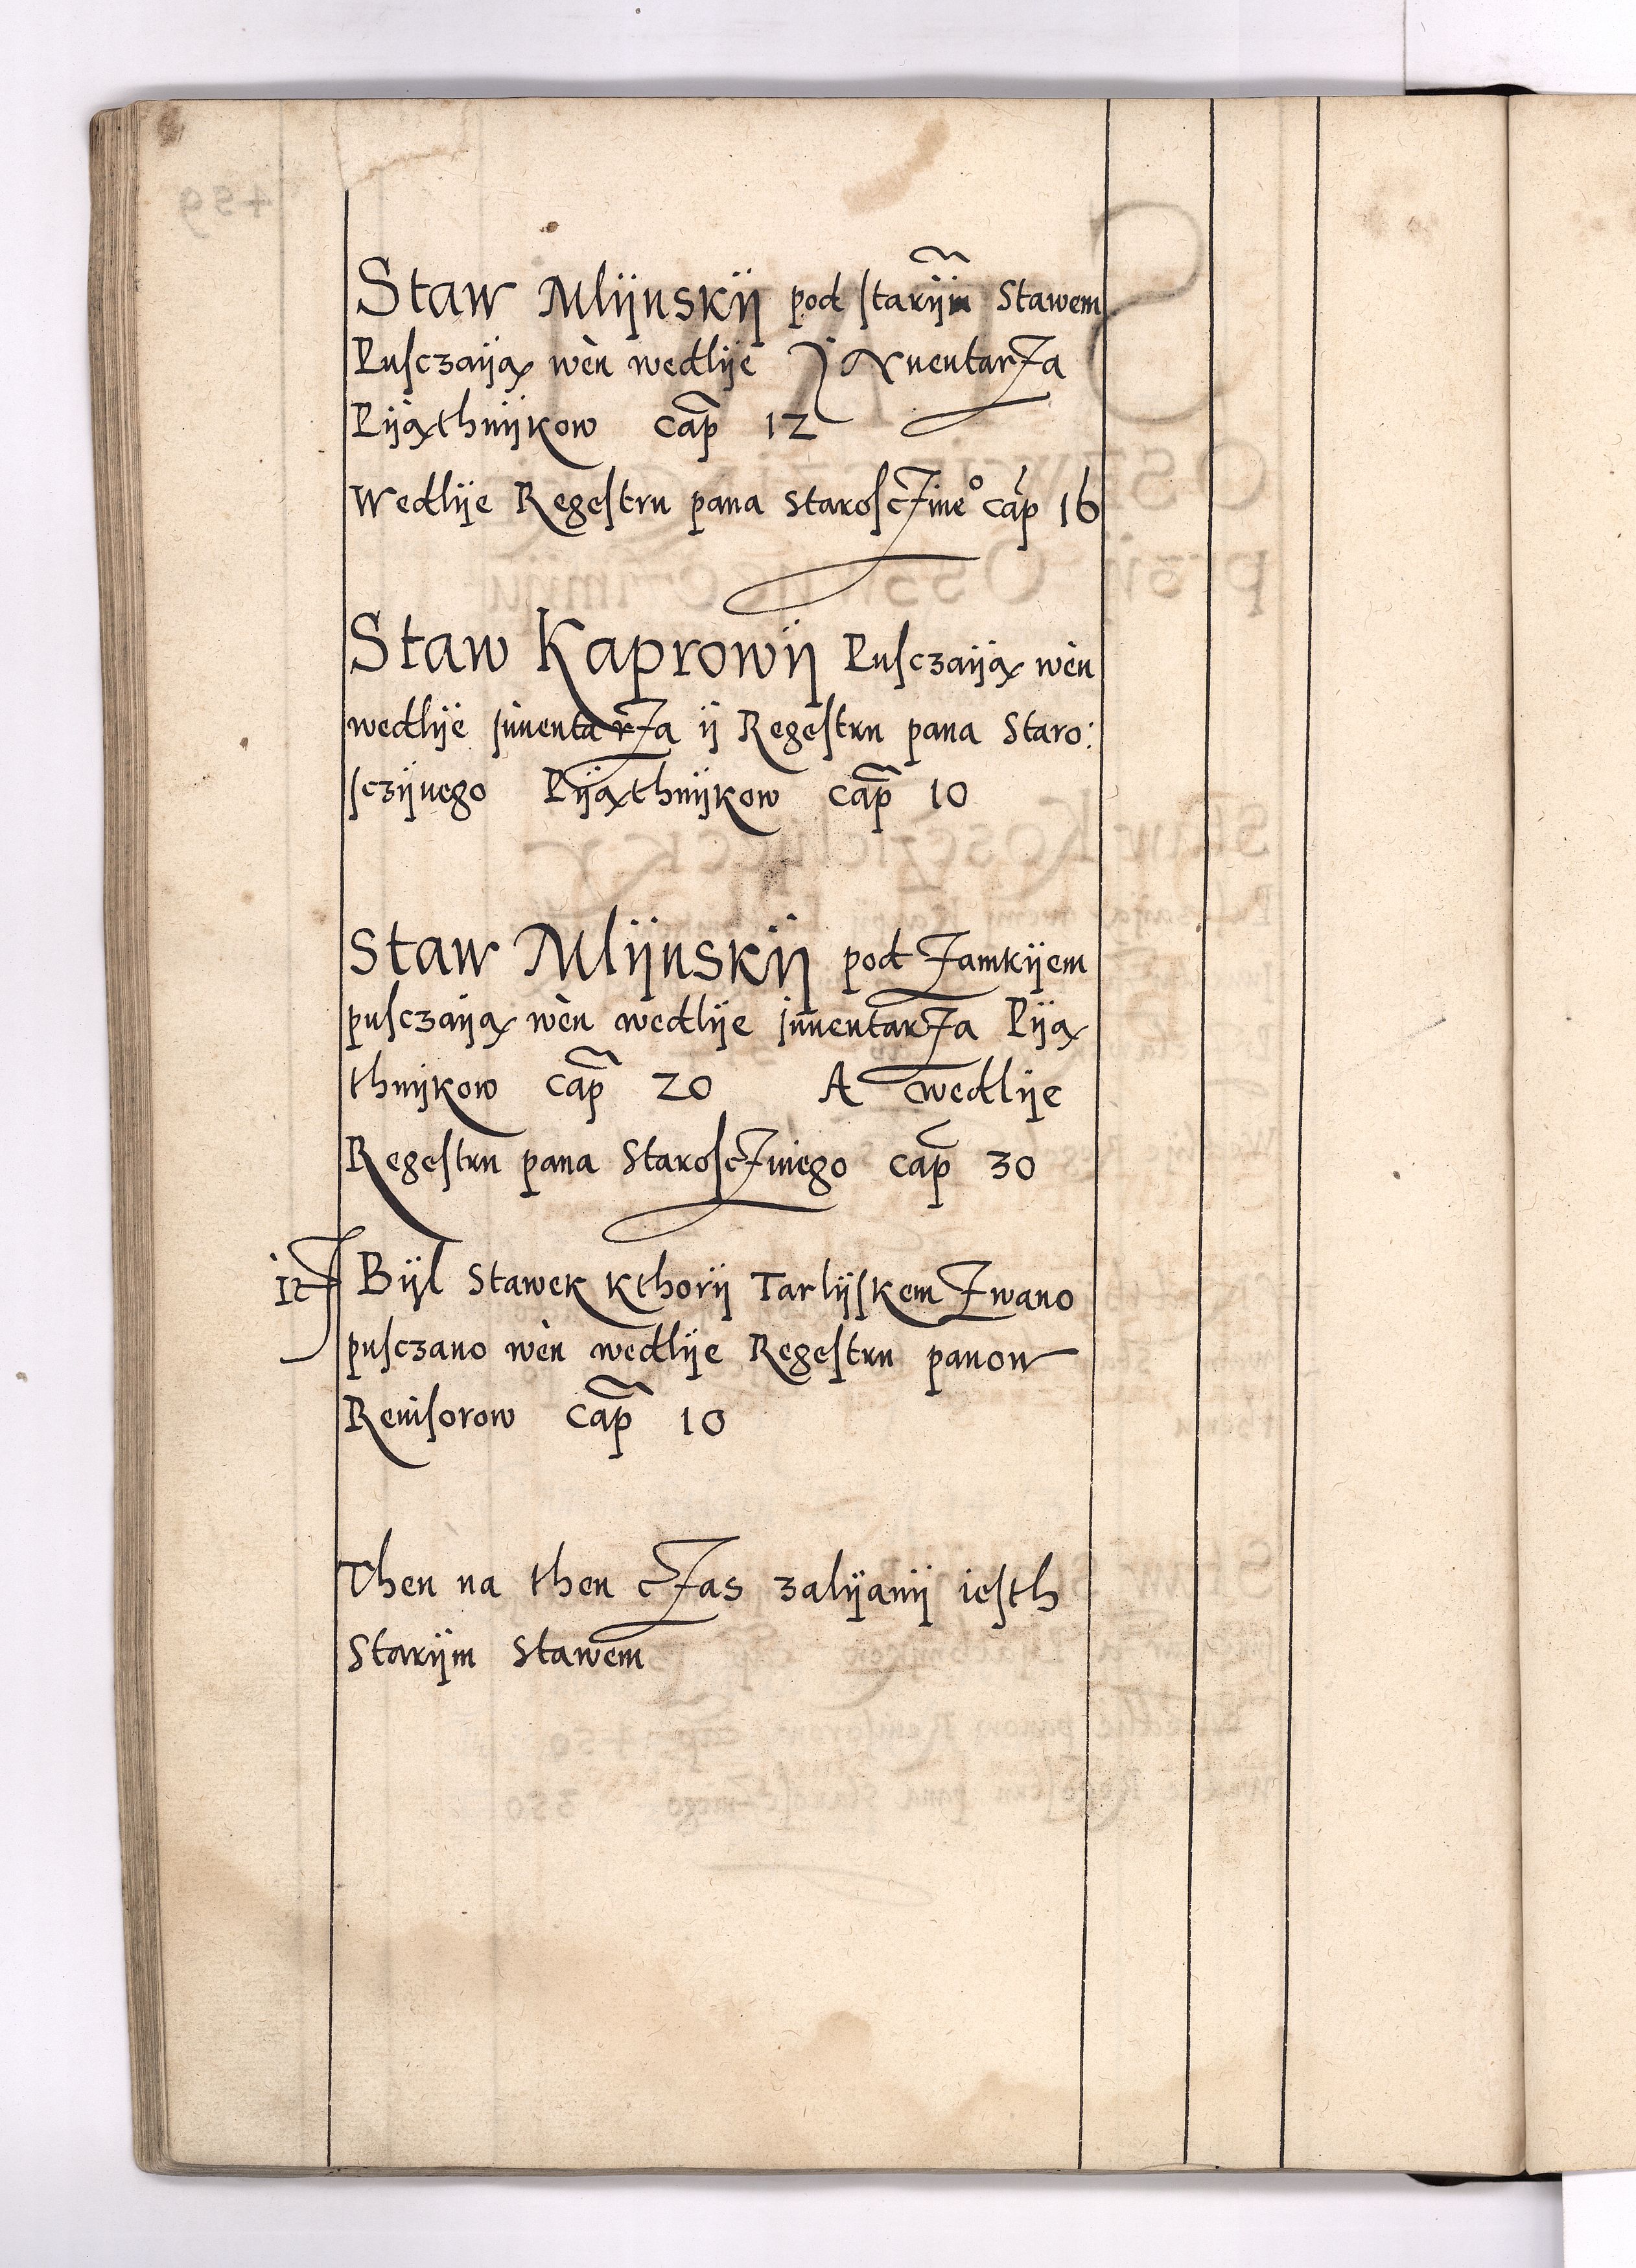 Staw Mlijnskij pod ſtarijm Stawem
Puſczaiją wèn wedlije Jnuentarza
Pijąthnijkow cap̃ 12
Wedlije Regeſtru pana Staroſczine° cap̃ 16
Staw Kaprowij Puſczaiją wèn
wedlije jnuentarza ij Regeſtru pana Staro:
ſczijnego Pijąthnijkow cap̃ 10
Staw Mlijnskij pod Zamkijem
puſczaiją wèn wedlije jnuentarza Piją
thnijkow cap̃ 20 A wedlije
Regeſtru pana Staroſczinego cap̃ 30
Itẽ Bijl Stawek kthorij Tarlijſkem Zwano
puſczano wèn wedlije Regeſtru panow
Reuiſorow cap̃ 10
Then na then czas zalijanij ieſth
Starijm Stawem